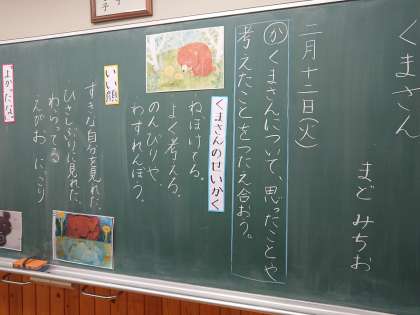 くまさん
まど みちお
二月十二日(火)
か くまさんについて、思ったことや
考えたことをつたえ合おう。
くまさんのせいかく
ねぼけてる。
よく考える。
のんびりや、
わすれんぼう。
いい顔
すきな自分を見れた、
ひさしぶりに見れた、
わらってる
えがお にっこり
よかったな